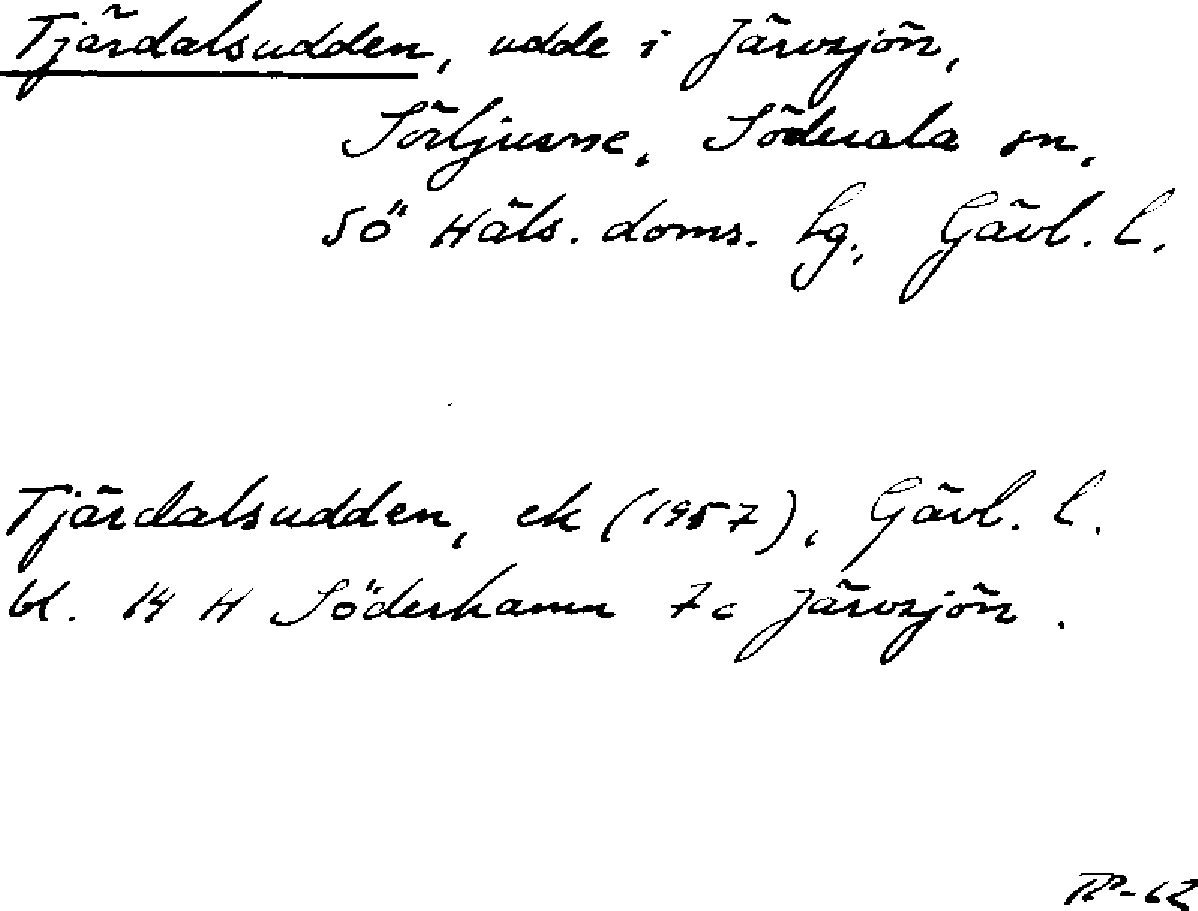 Tjärdalsudden, udde i Järvsjön,
Sörljusne, Söderala sn,
SÖ Häls. doms. lg., Gävl. l.
Tjärdalsudden, ek (1957), Gävl. l.
bl. 14 H Söderhamn 7c Järvsjön.
TP-62